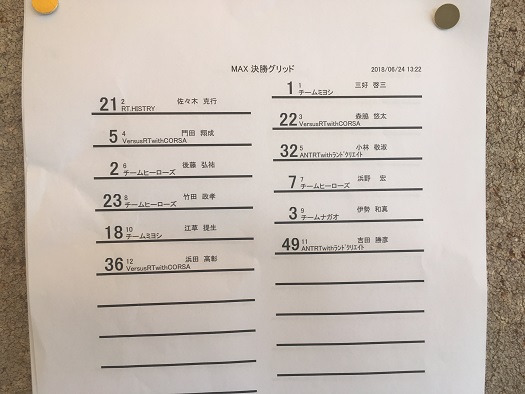 MAX 決勝グリッド
2018/06/24 13:22
1 1 三好 啓三
チームミヨシ
21 2 佐々木 克行
RT.HISTRY
22 3 森脇 悠太
VersusRTwithCORSA
5 4 門田 翔成
VersusRTwithCORSA
32 5 小林 敬淑
ANTRTwithランドクリエイト
2 6 後藤 弘祐
チームヒーローズ
7 7 浜野 宏
チームヒーローズ
23 8 竹田 政孝
チームヒーローズ
3 9 伊勢 和真
チームナガオ
18 10 江草 提生
チームミヨシ
49 11 吉田 勝彦
ANTRTwithランドクリエイト
36 12 浜田 高彰
VersusRTwithCORSA